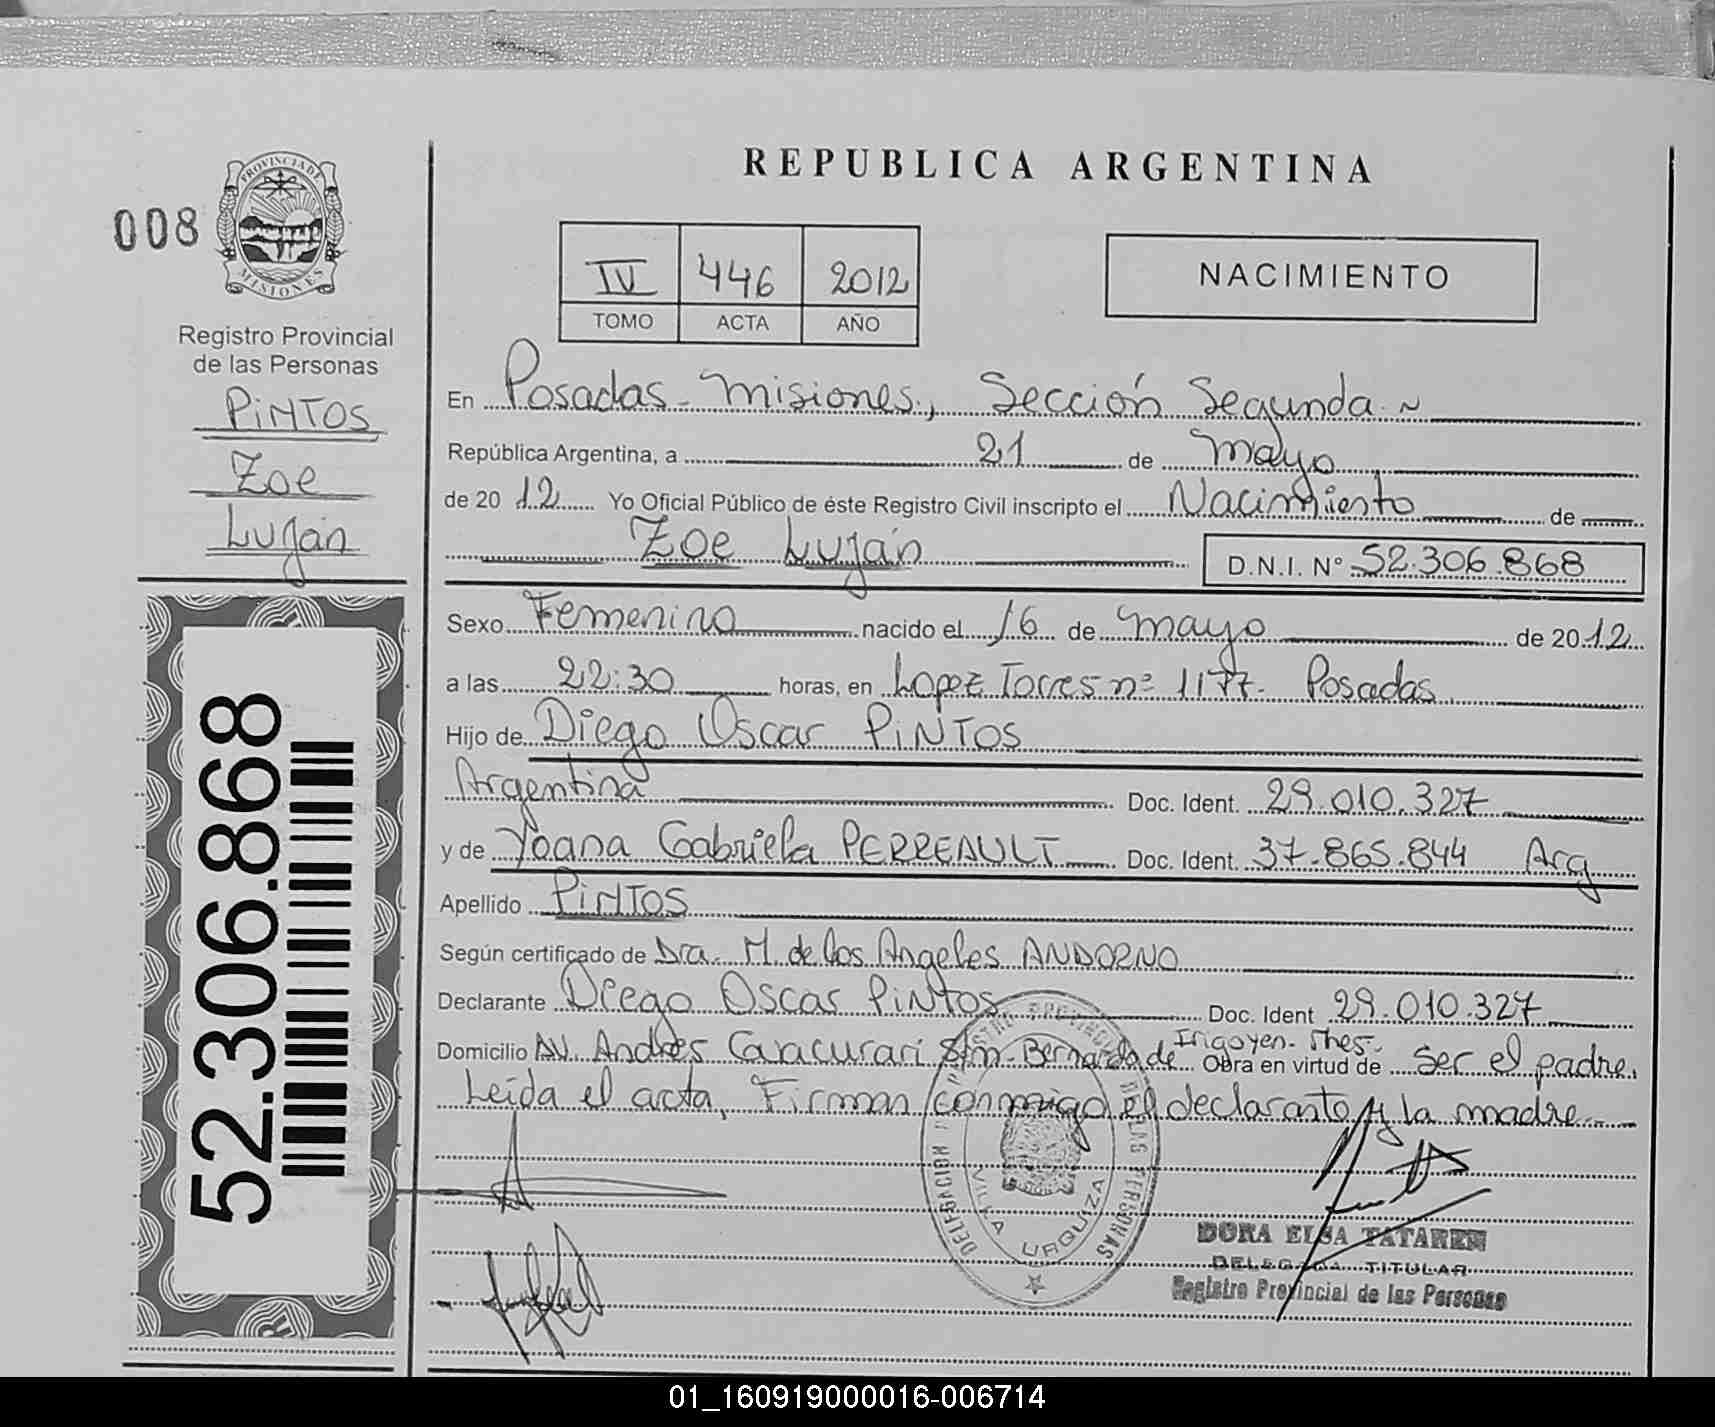 REPUBLICA ARGENTINA
008
PROVINCIA DE
MISIONES
Registro Provincial
de las Personas
PINTOS
Zoe
Luján
IV 446 2012
TOMO ACTA AÑO
NACIMIENTO
En Posadas - Misiones, Sección Segunda
República Argentina, a 21 de Mayo
de 2012 Yo Oficial Público de éste Registro Civil inscripto el Nacimiento de
Zoe Luján D.N.I. Nº 52.306.868
Sexo Femenino nacido el 16 de Mayo de 2012
a las 22:30 horas, en Lopez Torres nº 1177- Posadas
Hijo de Diego Oscar PINTOS
Argentina Doc. Ident. 29.010.327
y de Yoana Gabriela PERREAULT Doc. Ident. 37.865.844 Arg
Apellido PINTOS
Según certificado de Dra. M. de los Angeles ANDORNO
Declarante Diego Oscar PINTOS Doc. Ident 29.010.327
Domicilio AV. Andrés Cacurari S/n- Bernardo de Irigoyen- Mnes- Obra en virtud de Ser el padre.
Leída el acta, Firman conmigo el declarante y la madre
52.306.868
VILLA URQUIZA
DORA ELSA TATAREN
DELEGADA TITULAR
Registro Provincial de las Personas
01_160919000016-006714